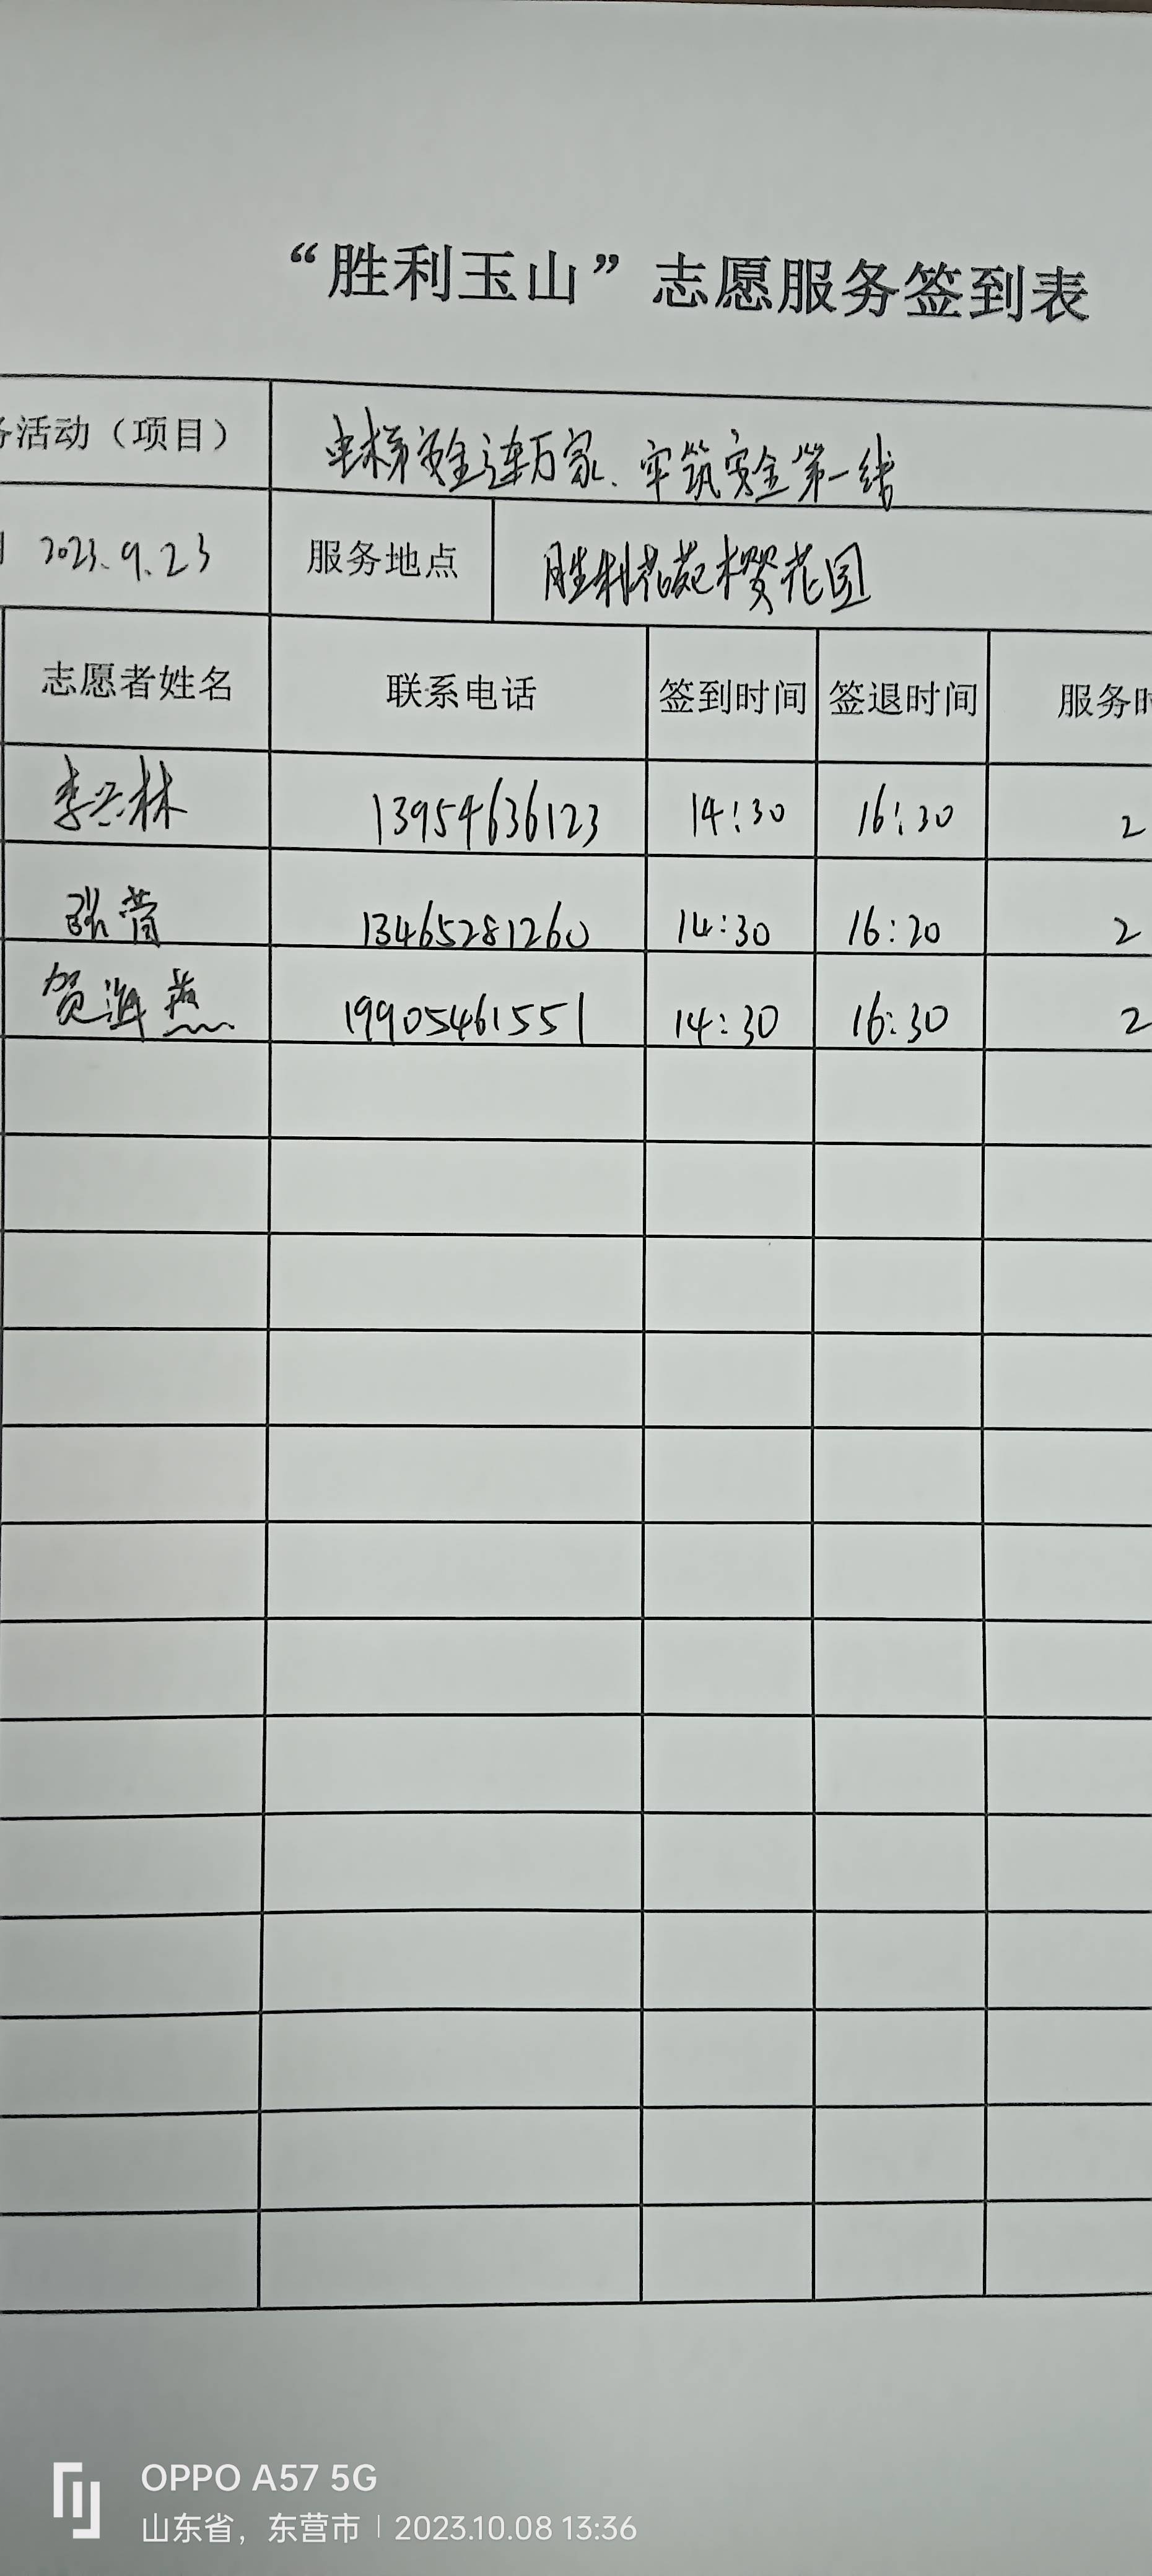 “胜利玉山”志愿服务签到表
活动（项目） 电梯安全连万家、牢筑安全第一线
2023.9.23 服务地点 胜利花苑樱花园
志愿者姓名 联系电话 签到时间 签退时间 服务时
李兴林 13954636123 14:30 16:30 2
13465281260 14:30 16:20 2
贺海燕 19905461551 14:30 16:30 2
OPPO A57 5G
山东省，东营市 | 2023.10.08 13:36